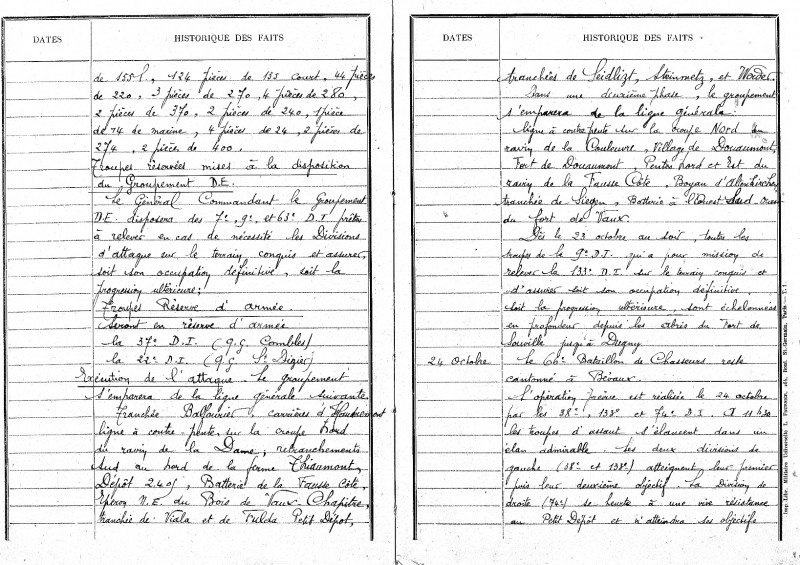 DATES
HISTORIQUE DES FAITS
de 155 l, 124 pièces de 155 court, 44 pièces
de 220, 3 pièces de 270, 4 pièces de 280,
2 pièces de 370, 2 pièces de 240, 1 pièce
de 74 de marine, 4 pièces de 24, 2 pièces de
274, 2 pièces de 400.
Troupes réservées mises à la disposition
du Groupement D.E.
Le Général Commandant le Groupement
D.E. disposera des 7e, 9e, et 63e D.I prêtes
à relever en cas de nécessité les Divisions
d'attaque sur le terrain conquis et assurer,
soit son occupation définitive, soit la
progression ultérieure;
Troupes Réserve d'armée.
Seront en réserve d'armée
la 37e D.I. (Q.G. Combles)
la 22e D.I. (Q.G. St Dizier)
Exécution de l'attaque. Le groupement
s'emparera de la ligne générale suivante
Tranchée Balfourier, carrières d'Haudromont
ligne à contre-pente, sur la croupe Nord
du ravin de la Dame, retranchements
Sud au nord de la ferme Thiaumont,
Dépôt 2.401, Batterie de la Fausse Côte,
Eperon N.E. du Bois de Vaux-Chapitre,
tranchée de Viala et de Fulda Petit Dépôt,
DATES
HISTORIQUE DES FAITS
tranchées de Seidlizt, Steinmetz, et Werder.
Dans une deuxième phase, le groupement
s'emparera de la ligne générale
ligne à contre pente sur la croupe Nord du
ravin de la Couleuvre, Village de Douaumont,
Fort de Douaumont, Pentes nord et Est du
ravin de la Fausse Côte, Boyau d'Altenkirchen,
tranchée de Siegen, Batterie à l'Ouest Sud Ouest
du fort de Vaux.
Dès le 23 octobre au soir, toutes les
troupes de la 9e D.I. qui a pour mission de
relever la 133e D.I. sur le terrain conquis et
d'assurer soit son occupation définitive
soit la progression ultérieure, sont échelonnées
en profondeur depuis les abris du Fort de
Souville jusqu'à Dugny
24 Octobre
Le 66e Bataillon de Chasseurs reste
cantonné à Bévaux.
L'opération Jacine est réalisée le 24 octobre
par les 38e, 133e et 74e D.I. A 11 h30
les troupes d'assaut s'élancent dans un
élan admirable. Les deux divisions de
gauche (38e et 133e) atteignent leur premier
puis leur deuxième objectif. La Division de
droite (74e) se heurte à une vive résistance
au Petit Dépôt et n'atteindra ses objectifs